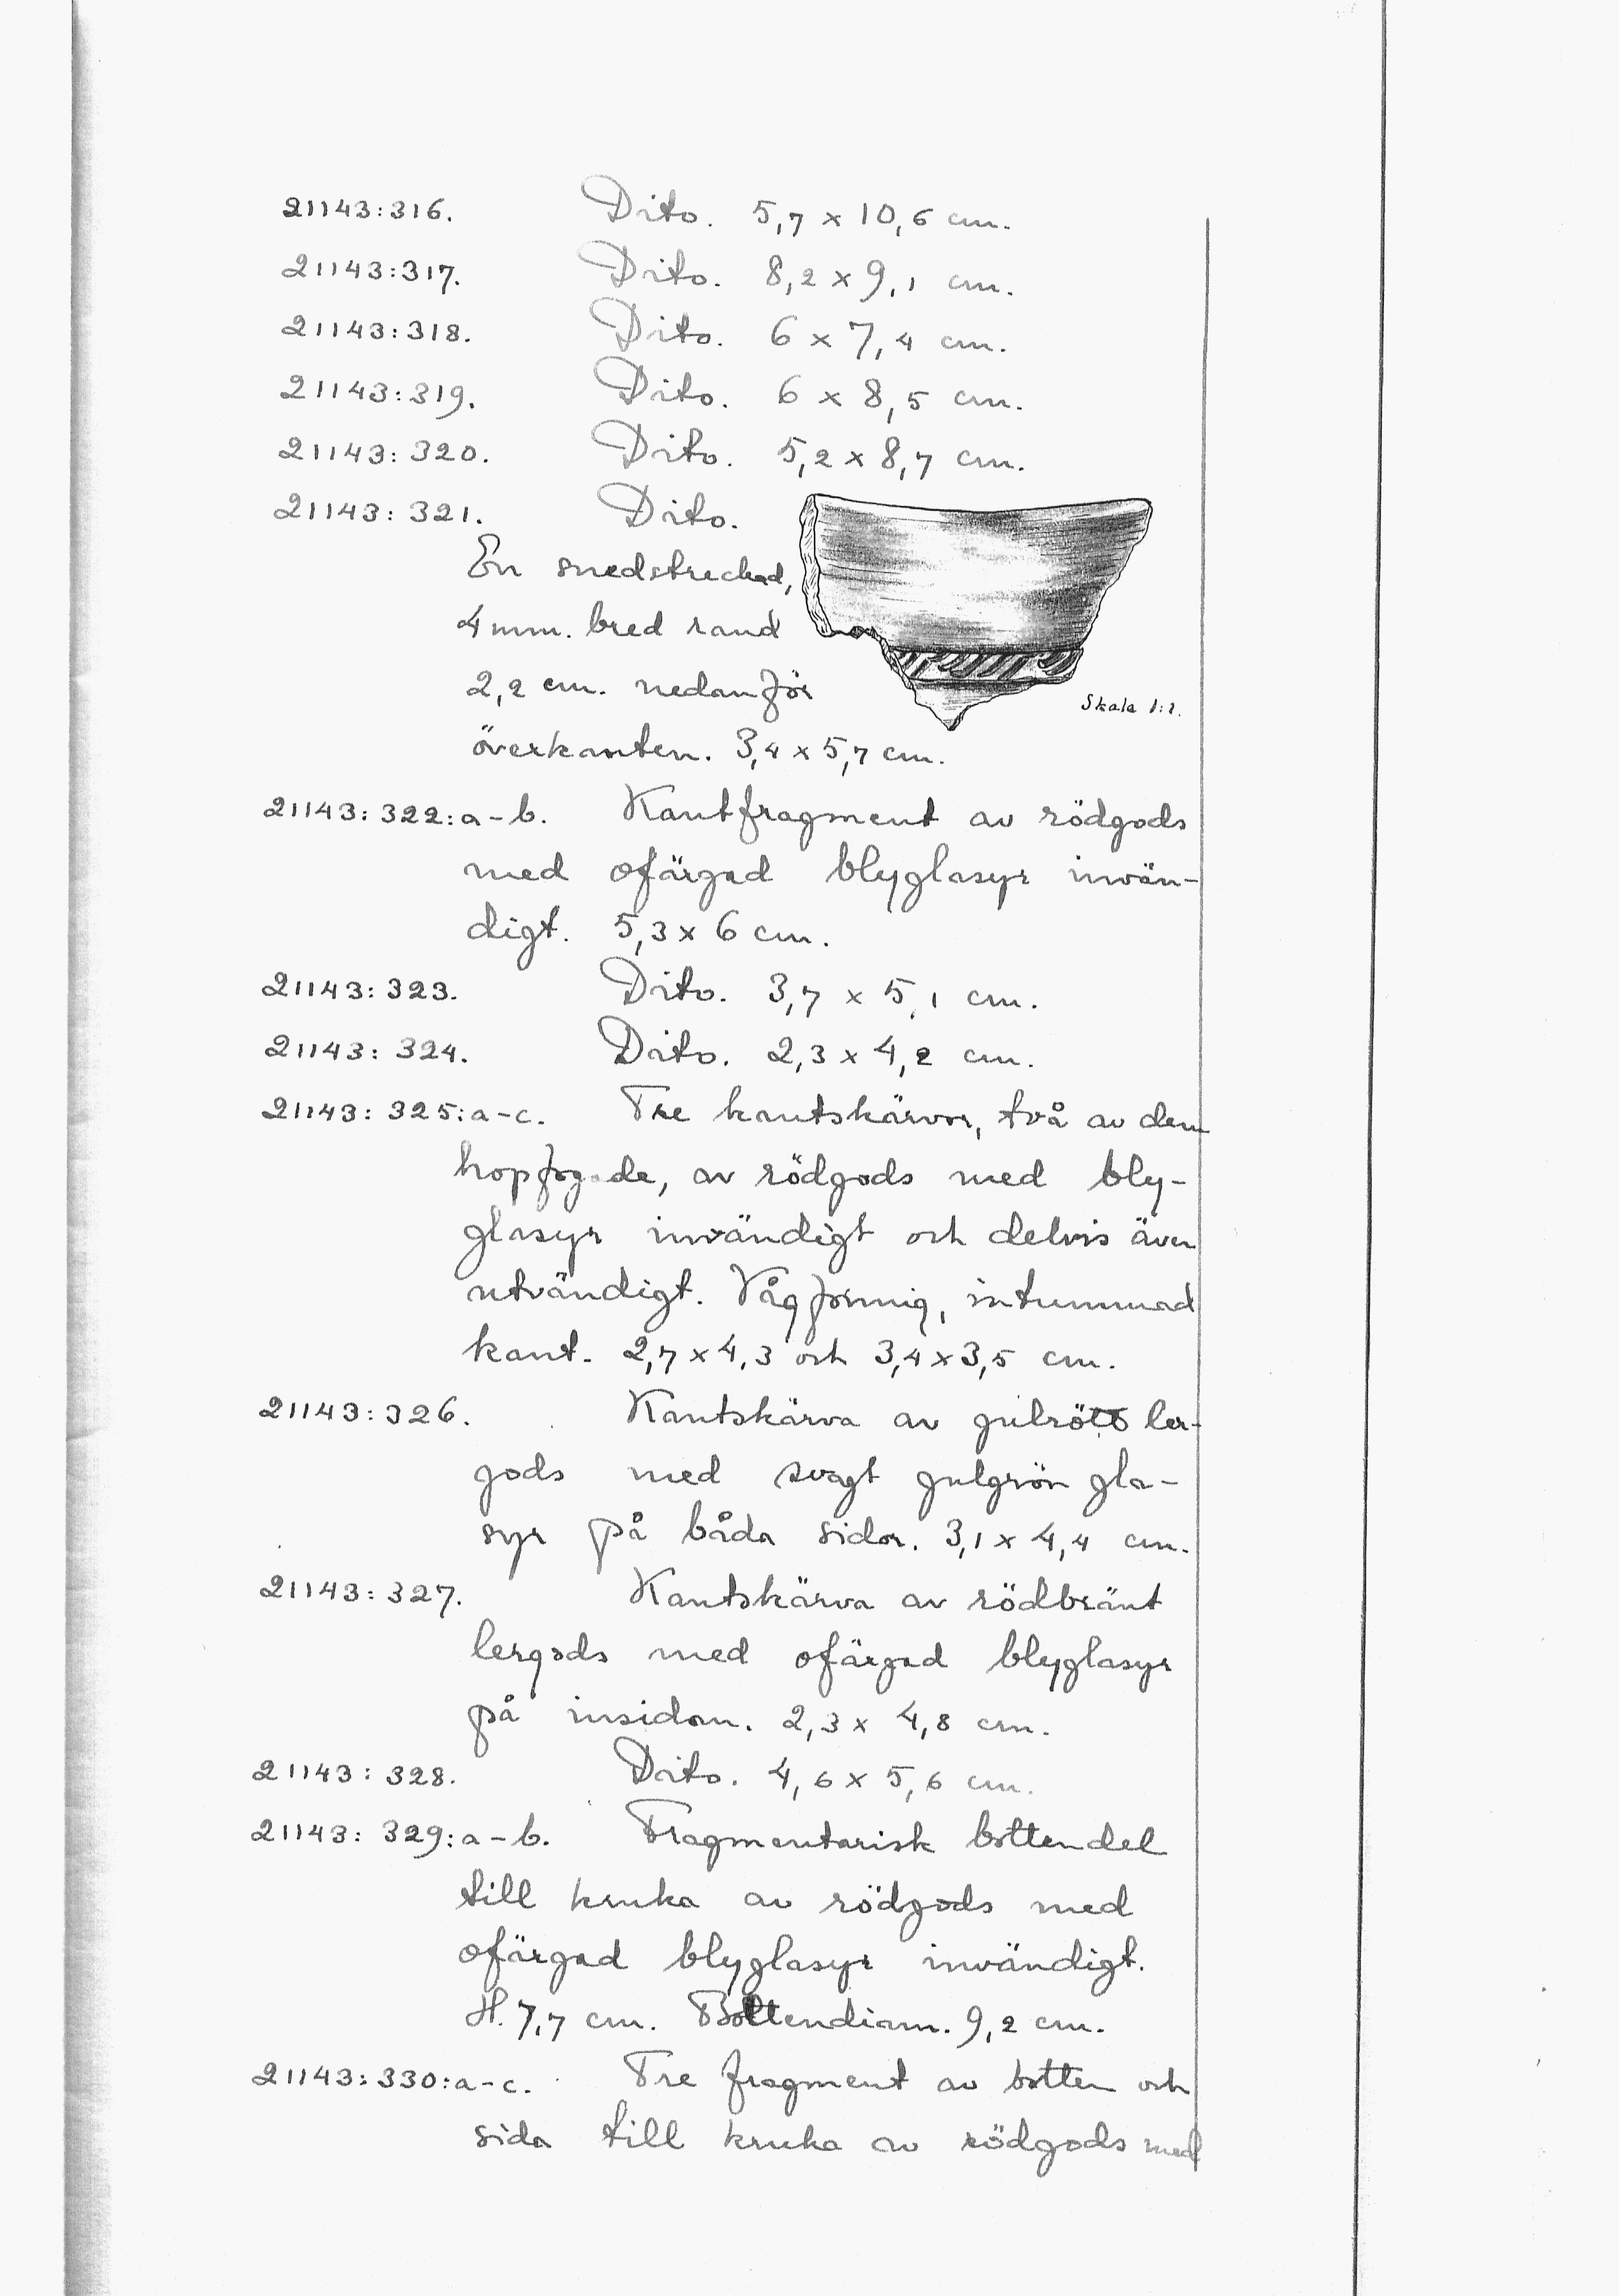 21143:316. Dito. 5,7 x 10,6 cm.
21143:317. Dito. 8,2 x 9,1 cm.
21143:318. Dito. 6 x 7,4 cm.
21143:319. Dito. 6 x 8,5 cm.
21143:320. Dito. 5,2 x 8,7 cm.
21143:321. Dito.
En snedstreckad,
4 mm. bred rand
2,2 cm. nedanför
Skala 1:1.
överkanten. 3,4 x 5,7 cm.
21143:322:a-b. Kantfragment av rödgods
med ofärgad blyglasyr invän-
digt. 5,3 x 6 cm.
21143:323. Dito. 3,7 x 5,1 cm.
21143:324. Dito. 2,3 x 4,2 cm.
21143:325:a-c. Tre kantskärvor, två av dem
hopfogade, av rödgods med bly-
glasyr invändigt och delvis även
utvändigt. Vågformig, intummad
kant. 2,7 x 4,3 och 3,4 x 3,5 cm.
21143:326. Kantskärva av gulrött ler-
gods med svagt gulgrön gla-
syr på båda sidor. 3,1 x 4,4 cm.
21143:327. Kantskärva av rödbränt
lergods med ofärgad blyglasyr
på insidan. 2,3 x 4,8 cm.
21143:328. Dito. 4,6 x 5,6 cm.
21143:329:a-b. Fragmentarisk bottendel
till kruka av rödgods med
ofärgad blyglasyr invändigt.
H. 7,7 cm. Bottendiam. 9,2 cm.
21143:330:a-c. Tre fragment av botten och
sida till kruka av rödgods med